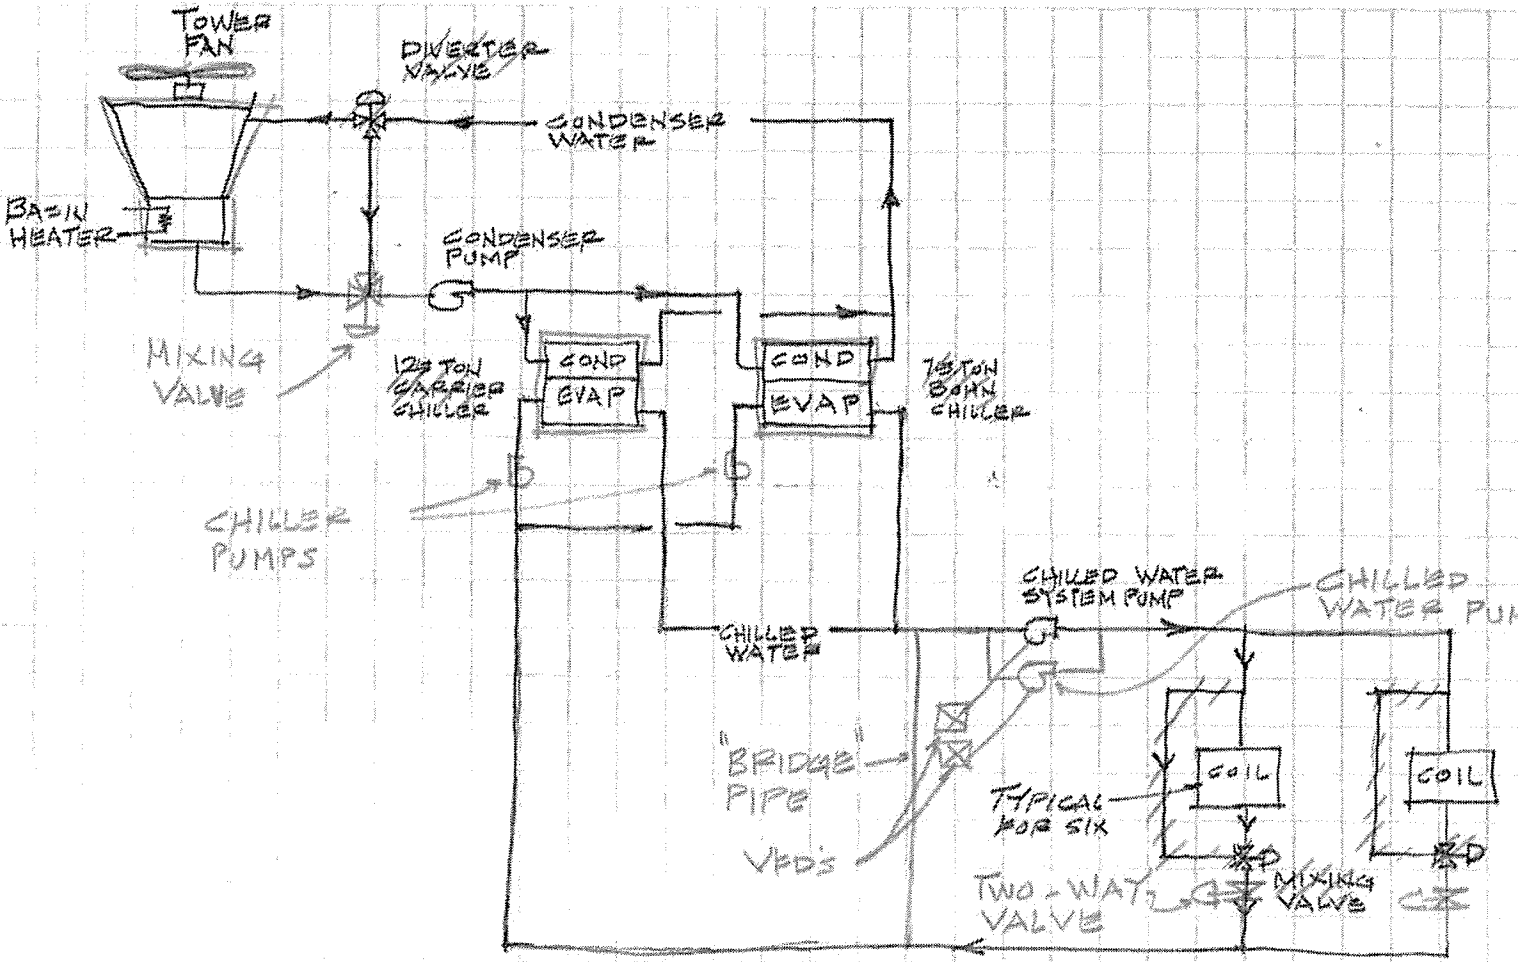 TOWER
FAN
DIVERTER
VALVE
CONDENSER
WATER
BASIN
HEATER
CONDENSER
PUMP
MIXING
VALVE
125 TON
CARRIER
CHILLER
COND
EVAP
COND
EVAP
75 TON
BOHN
CHILLER
CHILLER
PUMPS
CHILLED WATER
SYSTEM PUMP
CHILLED
WATER PUM
CHILLED
WATER
"BRIDGE"
PIPE
VFD'S
TYPICAL
FOR SIX
COIL
COIL
TWO-WAY
VALVE
MIXING
VALVE